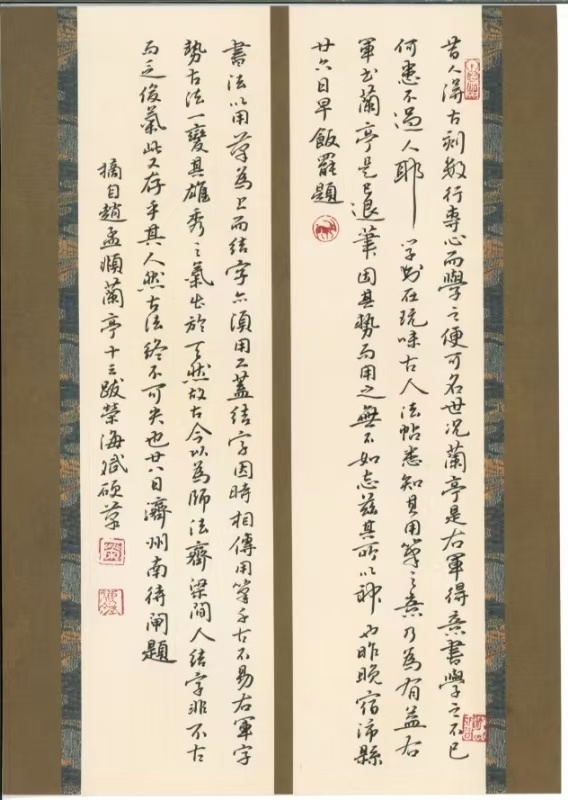 昔人得古刻數行專心而學之便可名世况蘭亭是右軍得意書學之不已
何患不過人耶 学書在玩味古人法帖悉知其用筆之意乃為有益右
軍书蘭亭是已退筆因其勢而用之無不如志兹其所以神也昨晚宿沛縣
廿六日早飯罷題
書法以用筆為上而結字亦須用工蓋結字因時相傳用筆千古不易右軍字
勢古法一變其雄秀之氣出於天然故古今以為師法齊梁间人結字非不古
而乏俊氣此又存乎其人然古法終不可失也廿八日濟州南待闸題
摘自趙孟頫蘭亭十三跋榮海斌硕筆